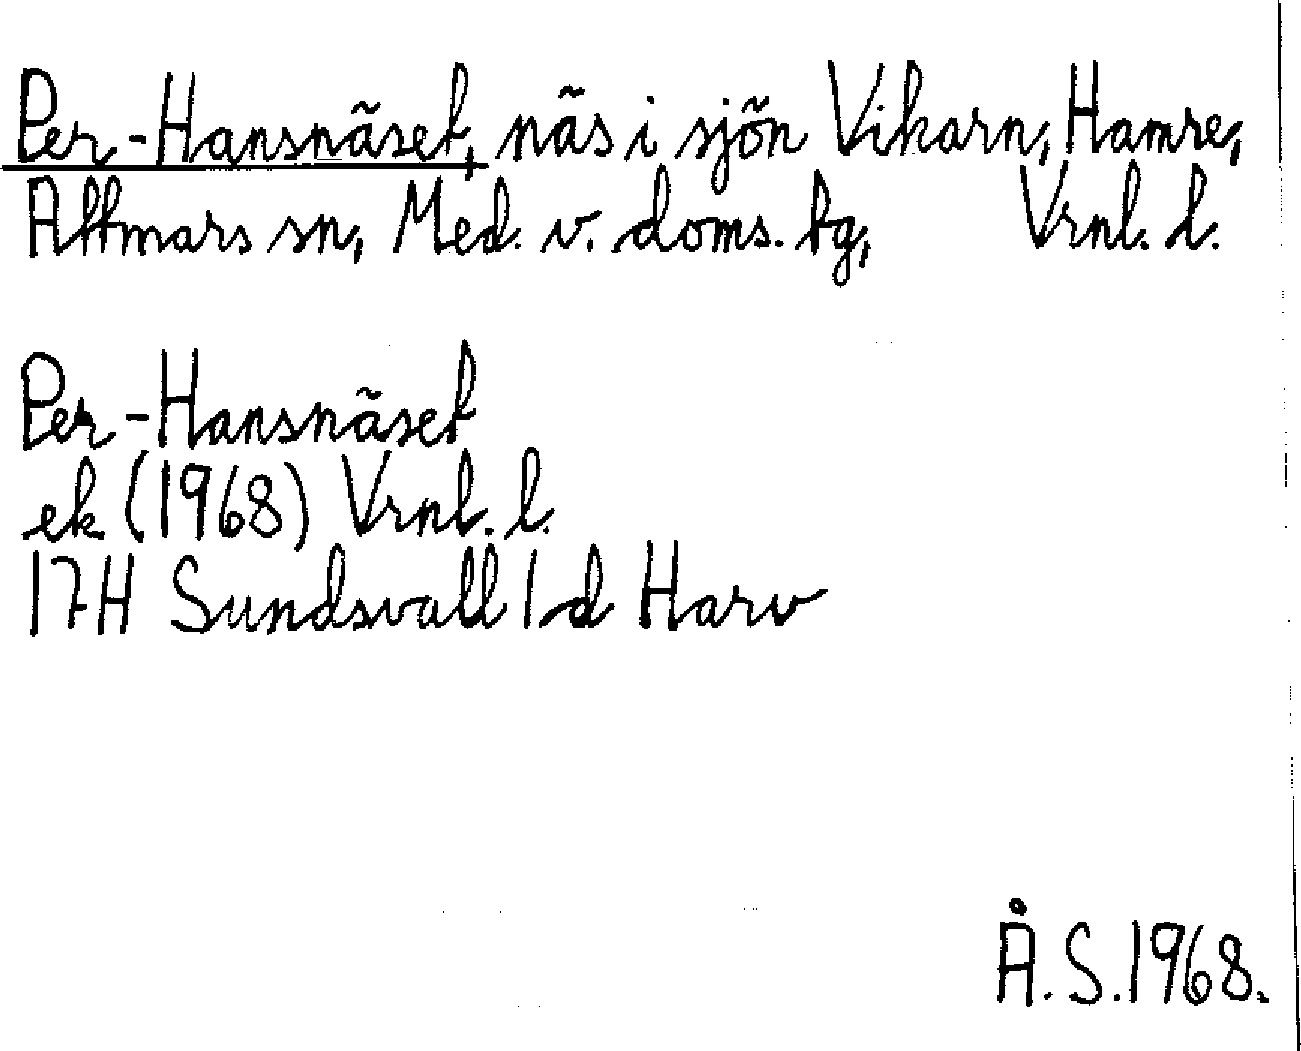 Per-Hansnäset, näs i sjön Vikarn, Hamre,
Attmars sn, Med. v. doms. tg, Vrnl. l.
Per-Hansnäset
ek (1968) Vrnl. l.
17H Sundsvall 1d Harv
Å.S.1968.